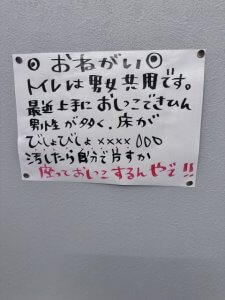 ◎おねがい◎
トイレは男女共用です。
最近上手におしっこできひん
男性が多く、床が
びしょびしょ××××
汚したら自分で片すか
座っておしっこするんやで!!